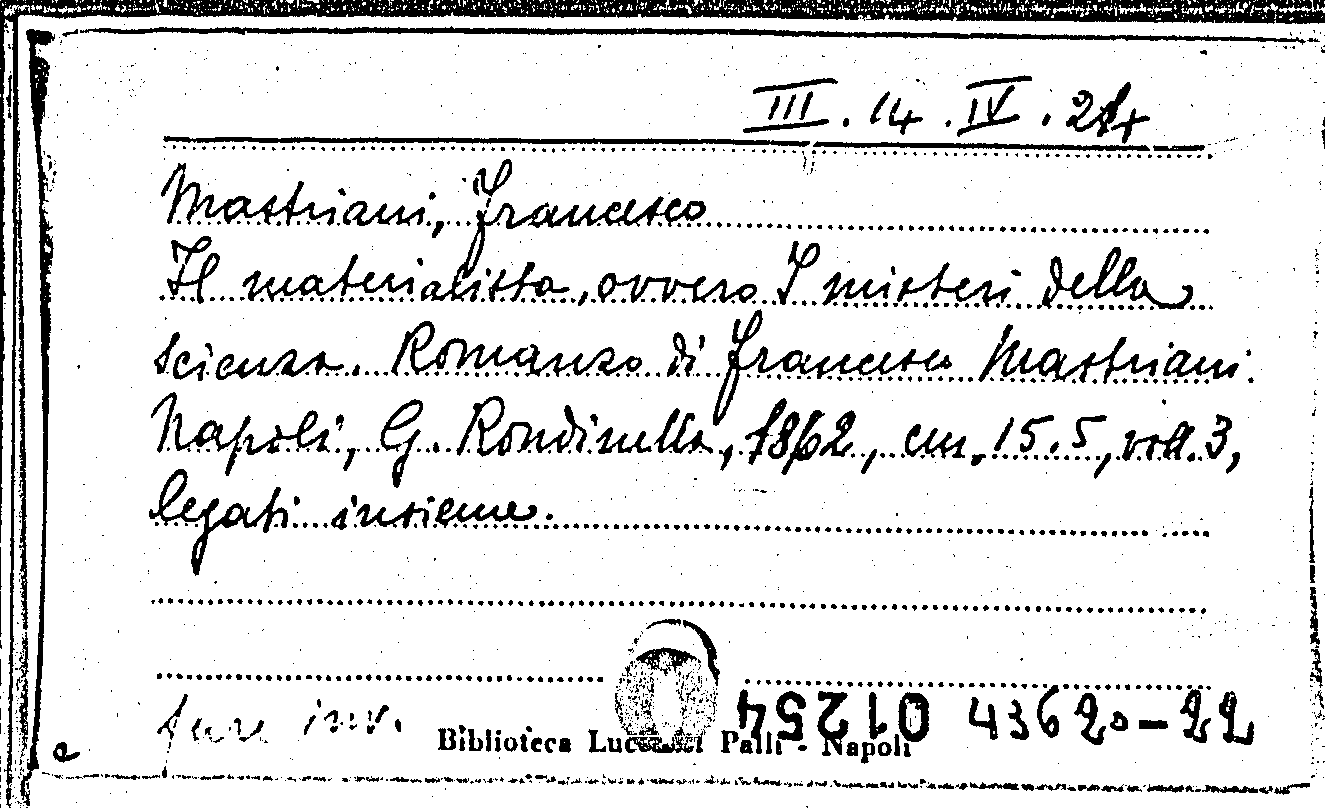 III. 14. IV. 24
Mastriani, Francesco
Il materialista, ovvero I misteri della
scienza. Romanzo di Francesco Mastriani.
Napoli, G. Rondinella, 1862, cm. 15.5, voll. 3,
legati insieme.
fare inv.
01254 43620-22
Biblioteca Lucchesi Palli - Napoli